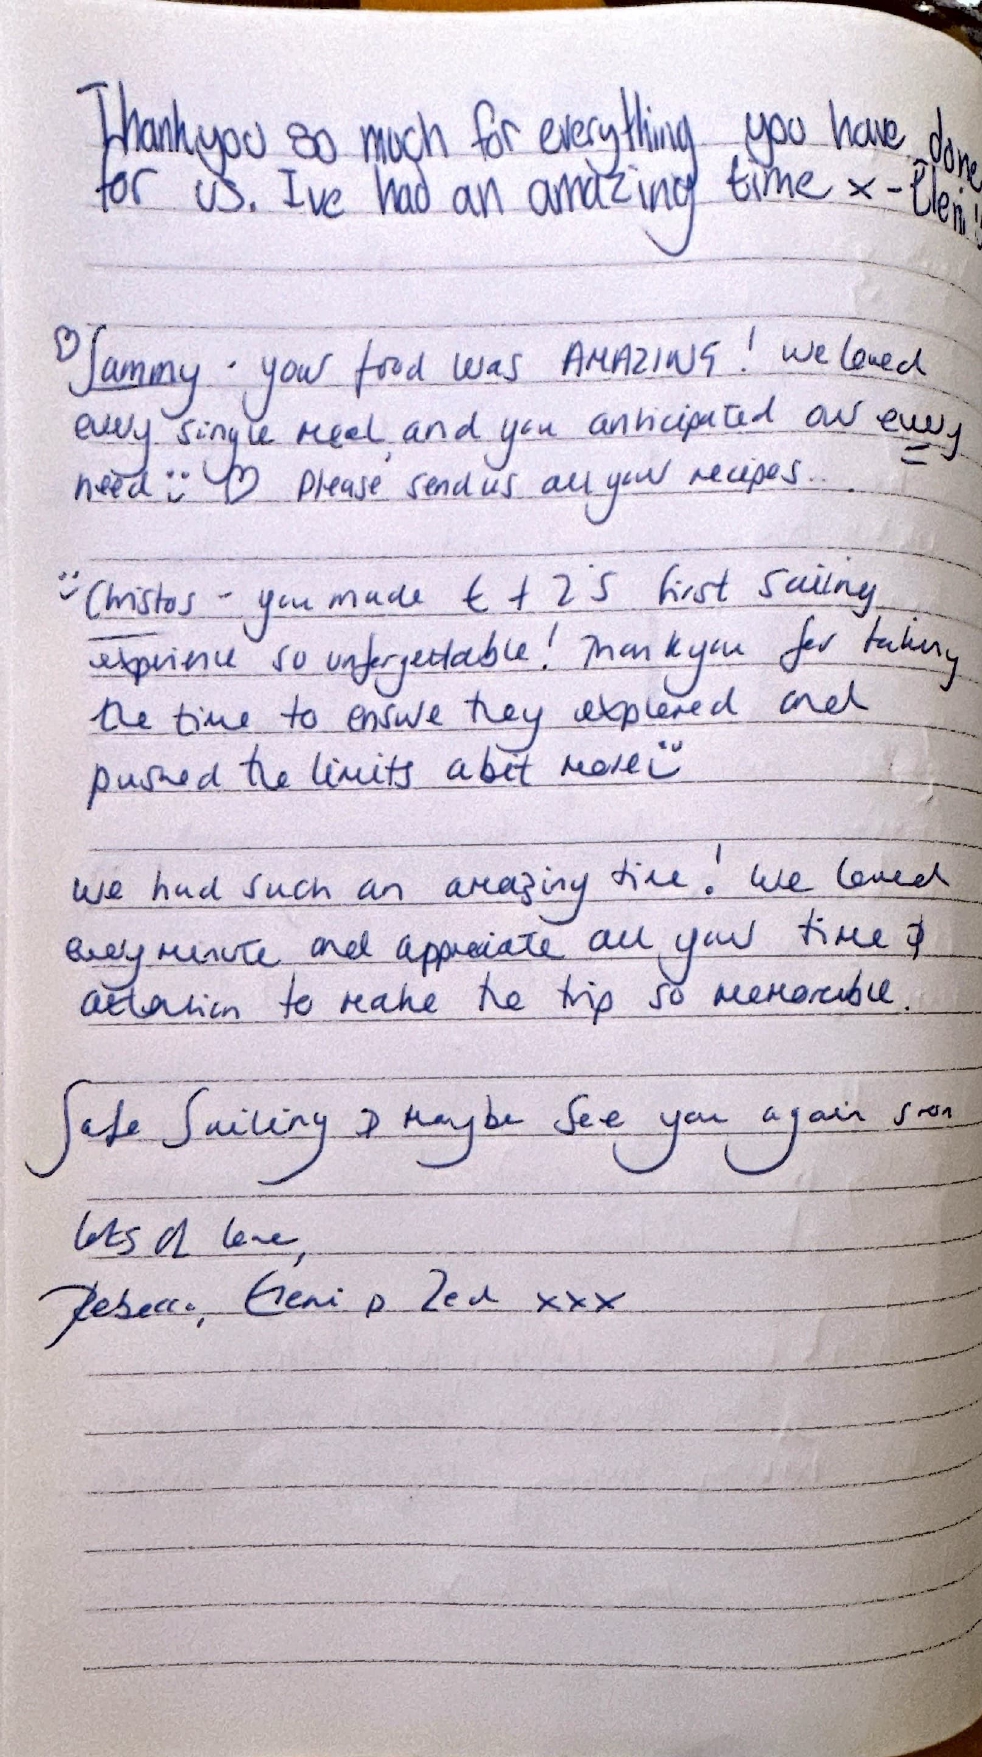 Thankyou so much for everything you have done
for us. Ive had an amazing time x - Eleni
♡ Sammy - your food was AMAZING! We loved
every single meal and you anticipated our every
need :) ♡ Please send us all your recipes...
:) Christos - you made E + Z's first sailing
experience so unforgettable! Thank you for taking
the time to ensure they explored and
pushed the limits a bit more :)
We had such an amazing time! We loved
every minute and appreciate all your time &
attention to make the trip so memorable.
Safe Sailing & Maybe see you again soon
lots of love,
Rebecca, Eleni & Zed xxx